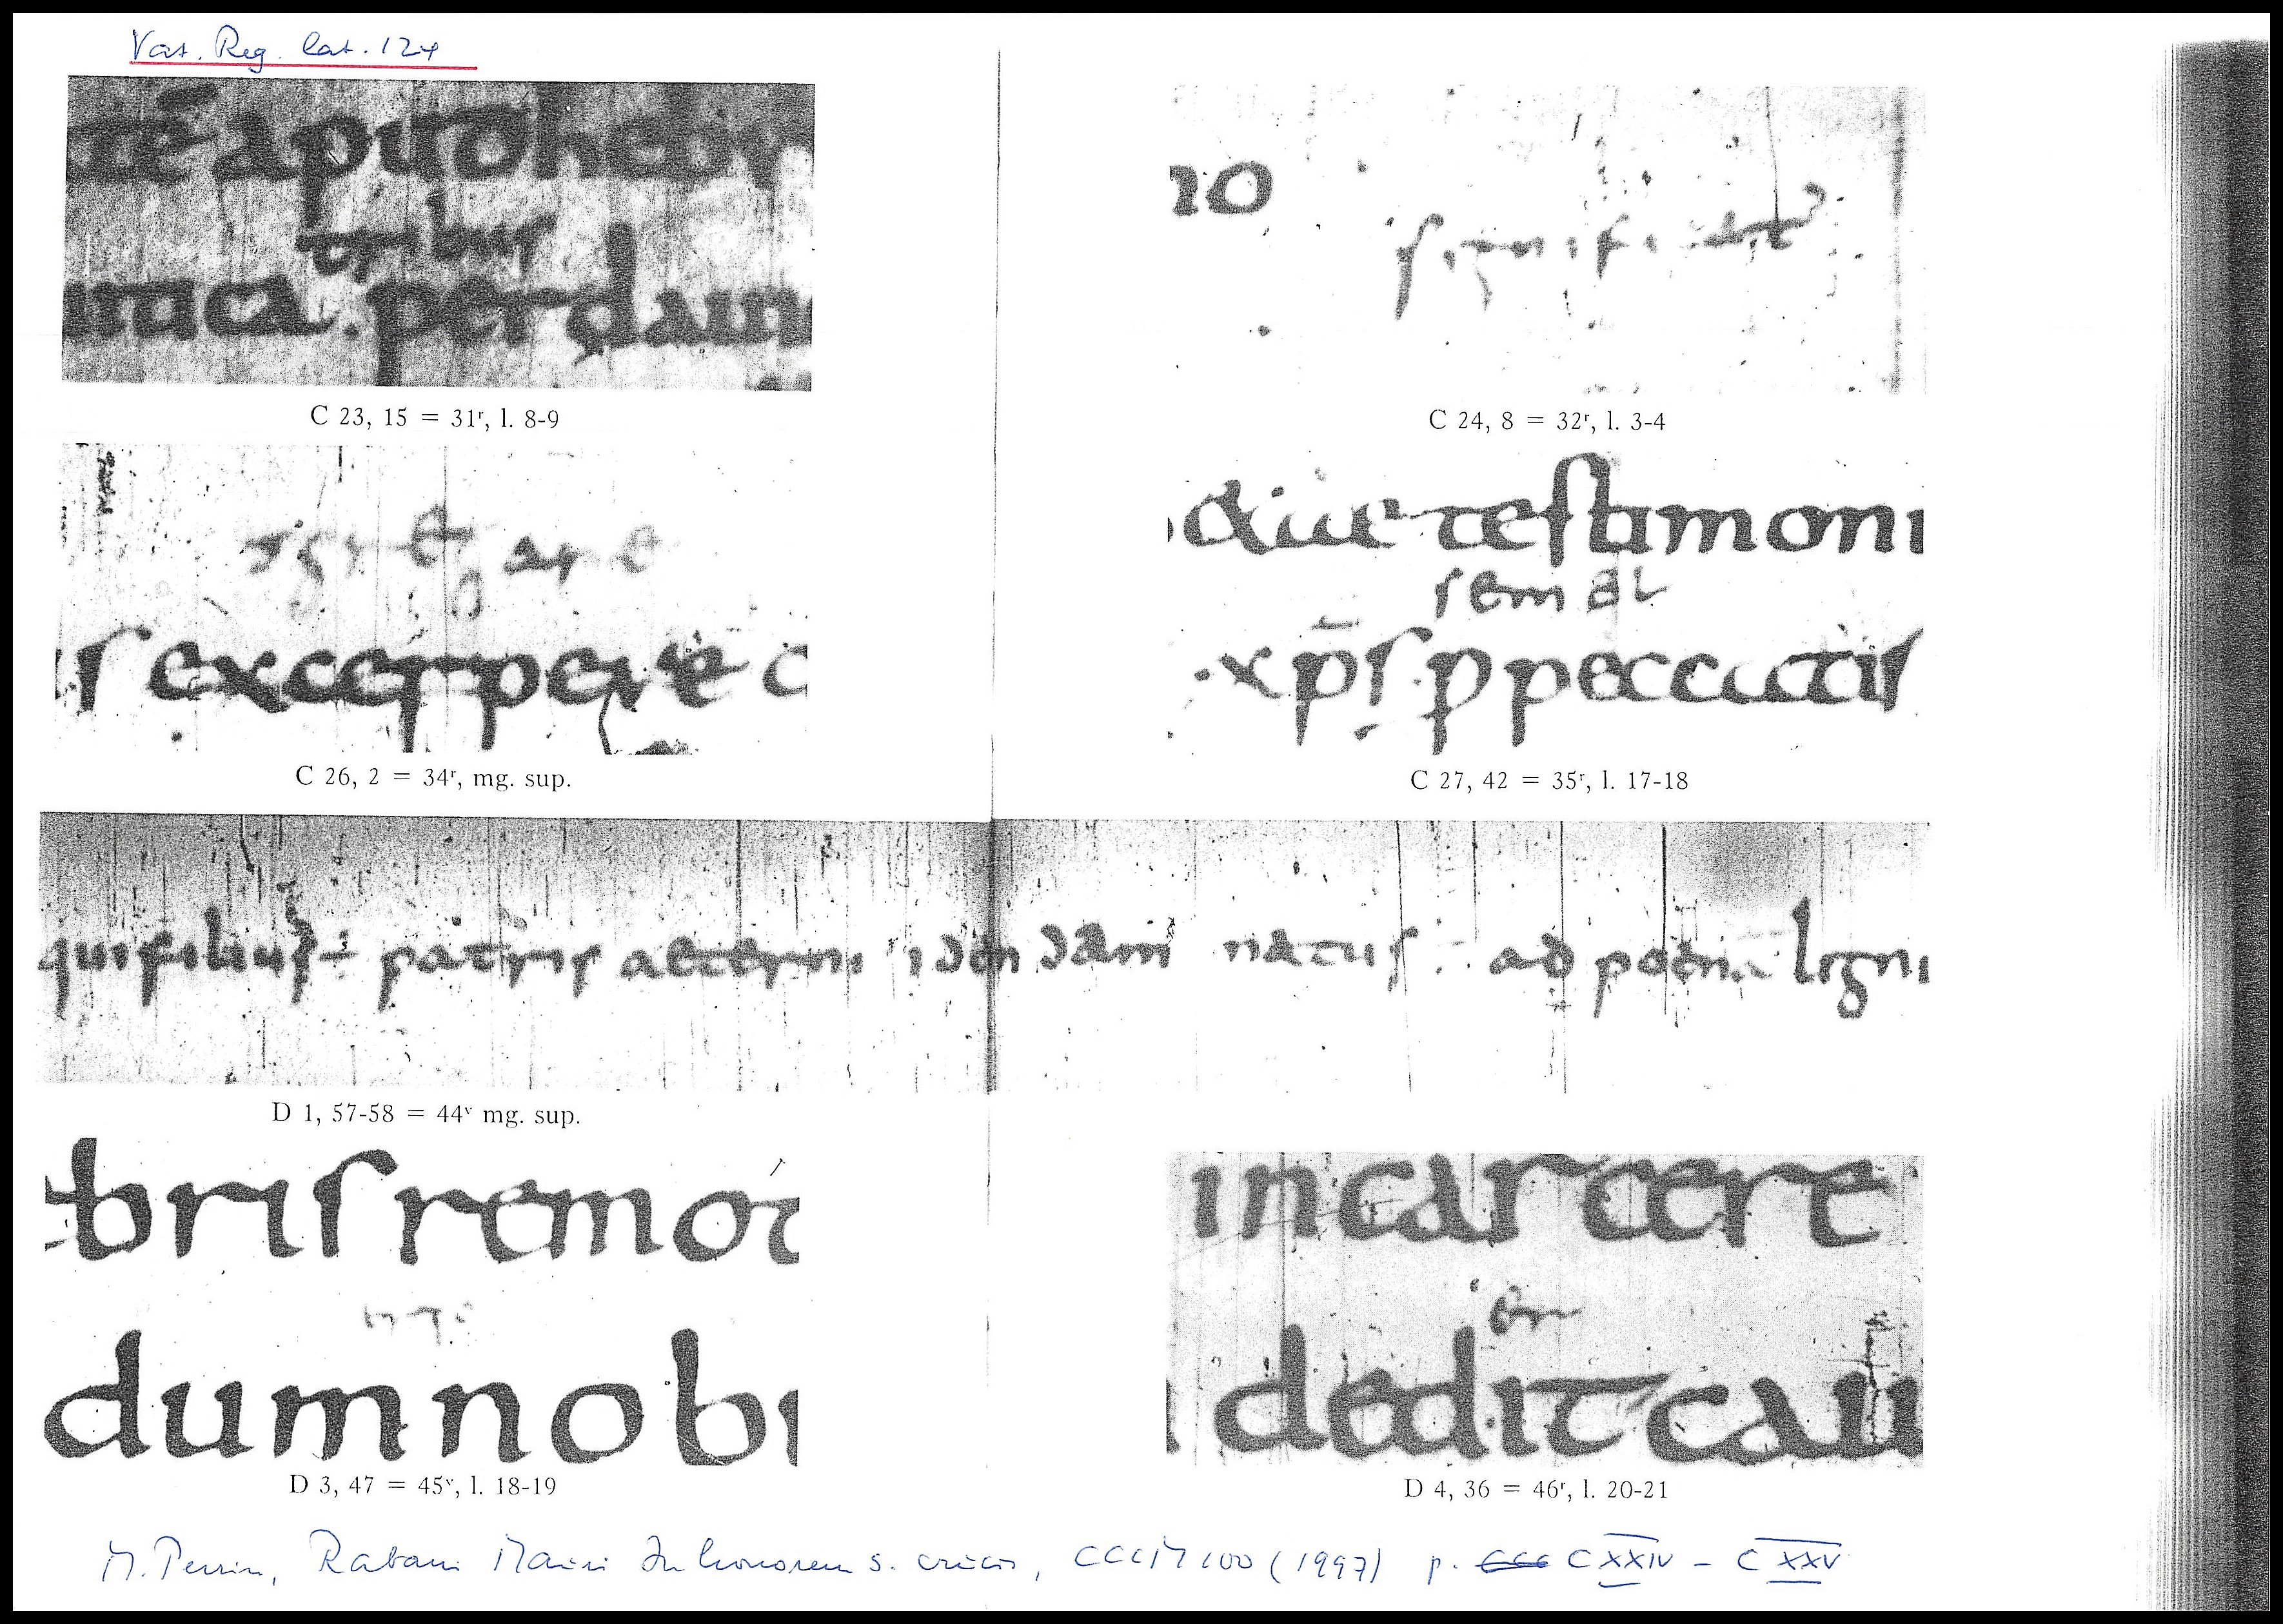 Vat. Reg. lat. 124
apud heb
oribus
unica. per
C 23, 15 = 31ʳ, l. 8-9
io
C 24, 8 = 32ʳ, l. 3-4
C 26, 2 = 34ʳ, mg. sup.
testimoni
semel
xp̄s ꝑ peccatis
C 27, 42 = 35ʳ, l. 17-18
qui filius ÷ patris aeterni natus ad lign
D 1, 57-58 = 44ᵛ mg. sup.
bris remot
dum nobi
D 3, 47 = 45ᵛ, l. 18-19
in carcere
dedit cau
D 4, 36 = 46ʳ, l. 20-21
M. Perrin, Rabani Mauri In honorem s. crucis, CCCM 100 (1997) p. CXXIV - CXXV